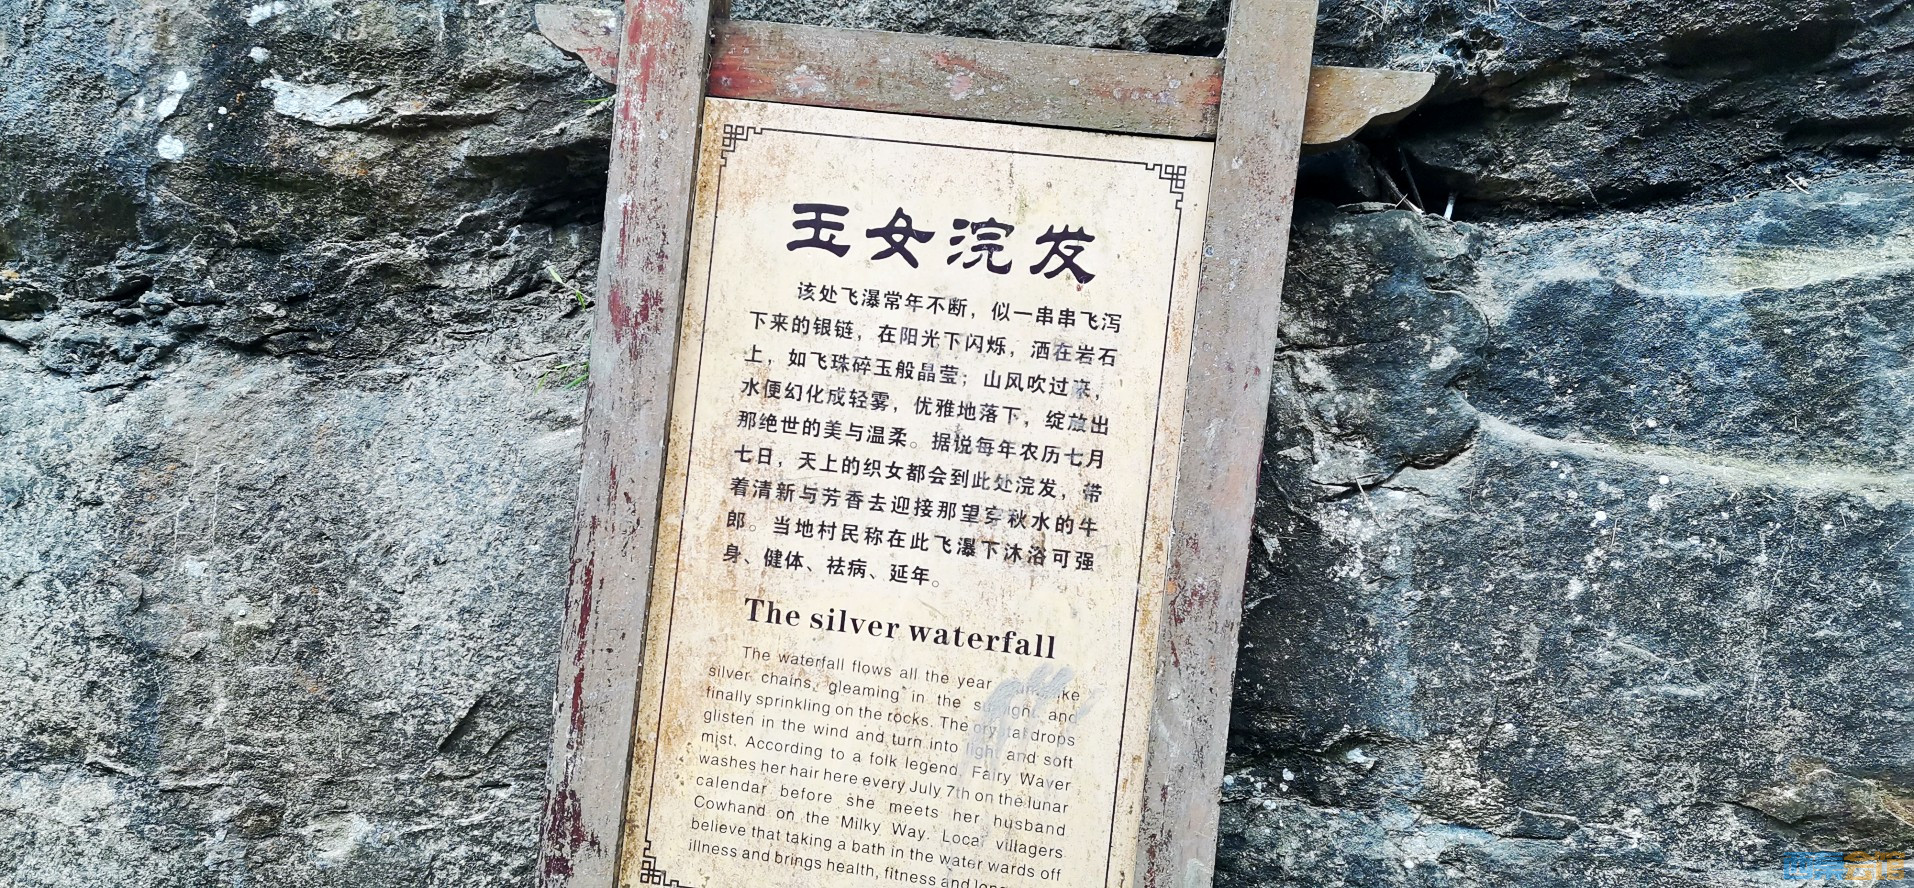 玉女浣发
该处飞瀑常年不断，似一串串飞泻
下来的银链，在阳光下闪烁，洒在岩石
上，如飞珠碎玉般晶莹；山风吹过来，
水便幻化成轻雾，优雅地落下，绽放出
那绝世的美与温柔。据说每年农历七月
七日，天上的织女都会到此处浣发，带
着清新与芳香去迎接那望穿秋水的牛
郎。当地村民称在此飞瀑下沐浴可强
身、健体、祛病、延年。
The silver waterfall
The waterfall flows all the year
silver chains, gleaming in the sunlight and
finally sprinkling on the rocks. The crystal drops
glisten in the wind and turn into light and soft
mist. According to a folk legend, Fairy Waver
washes her hair here every July 7th on the lunar
calendar before she meets her husband
Cowhand on the Milky Way. Local villagers
believe that taking a bath in the water wards off
illness and brings health, fitness and